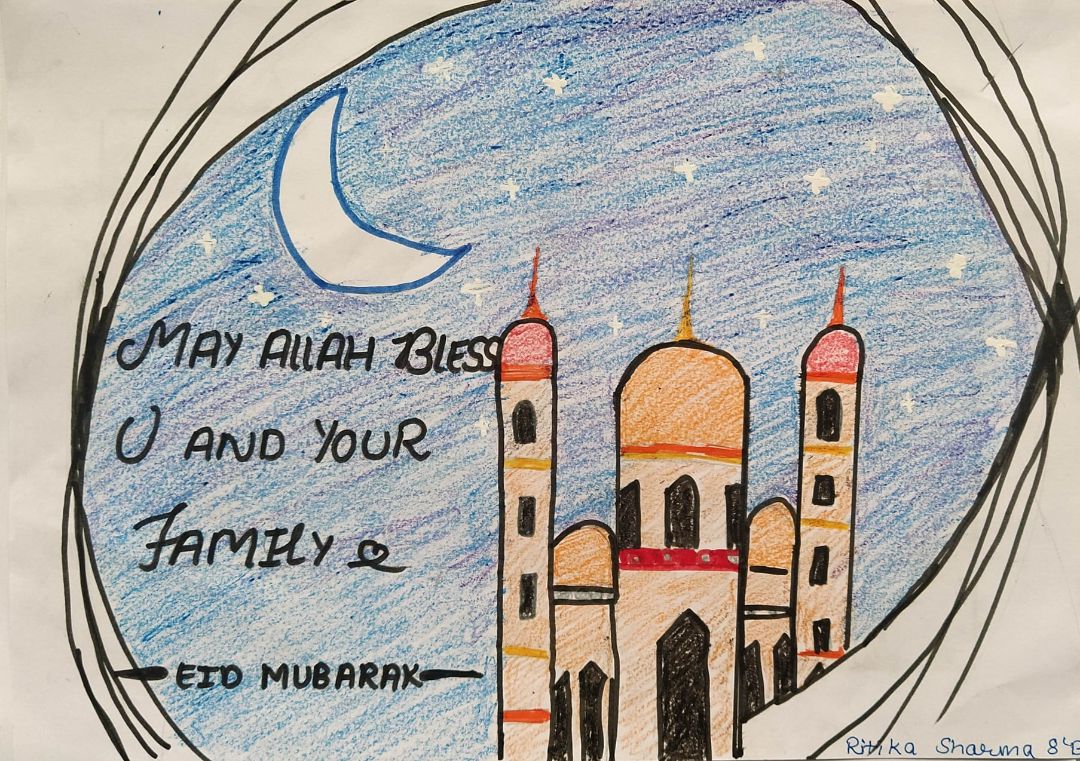 MAY ALLAH BLESS
U AND YOUR
FAMILY
EID MUBARAK
Ritika Sharma 8'E